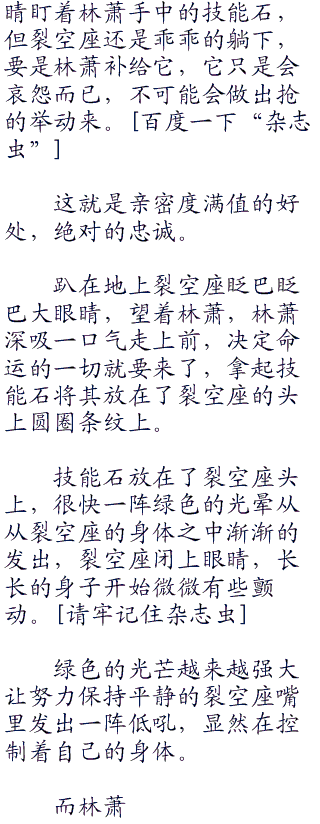 睛盯着林萧手中的技能石，
但裂空座还是乖乖的躺下，
要是林萧补给它，它只是会
哀怨而已，不可能会做出抢
的举动来。[百度一下“杂志
虫”]
这就是亲密度满值的好
处，绝对的忠诚。
趴在地上裂空座眨巴眨
巴大眼睛，望着林萧，林萧
深吸一口气走上前，决定命
运的一切就要来了，拿起技
能石将其放在了裂空座的头
上圆圈条纹上。
技能石放在了裂空座头
上，很快一阵绿色的光晕从
从裂空座的身体之中渐渐的
发出，裂空座闭上眼睛，长
长的身子开始微微有些颤
动。[请牢记住杂志虫]
绿色的光芒越来越强大
让努力保持平静的裂空座嘴
里发出一阵低吼，显然在控
制着自己的身体。
而林萧